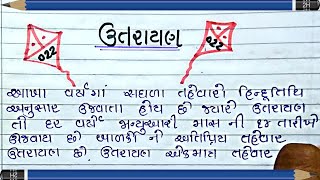 ઉતરાયણ
022
022
આખા વર્ષમાં સઘળા તહેવારો હિન્દુતિથિ
અનુસાર ઉજવાતા હોય છે જ્યારે ઉતરાયણ
તો દર વર્ષે જાન્યુઆરી માસ ની ૧૪ તારીખે
ઉજવાય છે બાળકો નો અતિપ્રિય તહેવાર
ઉતરાયણ છે ઉતરાયણ એકમાત્ર તહેવાર